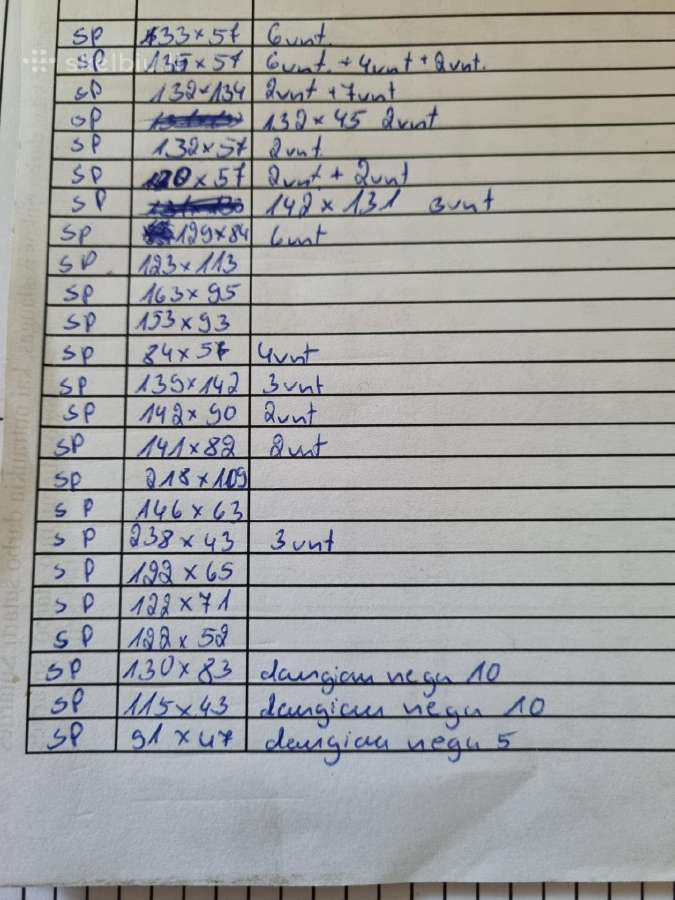 SP 133 x 57 6vnt.
SP 135 x 57 6vnt. + 4vnt + 2vnt.
SP 132 x 134 2vnt + 7vnt
SP 132 x 45 2vnt
SP 132 x 57 2vnt
SP 120 x 57 2vnt + 2vnt
SP 142 x 131 3vnt
SP 129 x 84 6vnt
SP 123 x 113
SP 163 x 95
SP 153 x 93
SP 84 x 57 4vnt
SP 139 x 142 3vnt
SP 142 x 90 2vnt
SP 141 x 82 2vnt
SP 218 x 109
SP 146 x 63
SP 238 x 43 3vnt
SP 122 x 65
SP 122 x 71
SP 122 x 52
SP 130 x 83 daugiau negu 10
SP 115 x 43 daugiau negu 10
SP 91 x 47 daugiau negu 5